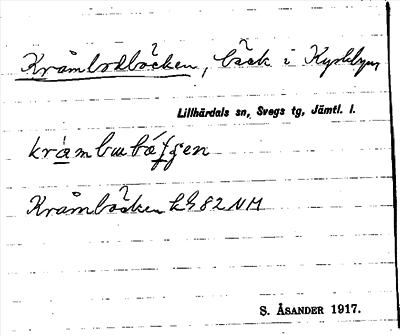 Kråmbodbäcken, bäck i Kyrkbyn,
Lillhärdals sn, Svegs tg, Jämtl. l.
Kråmbäcken k h 82 NM
S. ÅSANDER 1917.